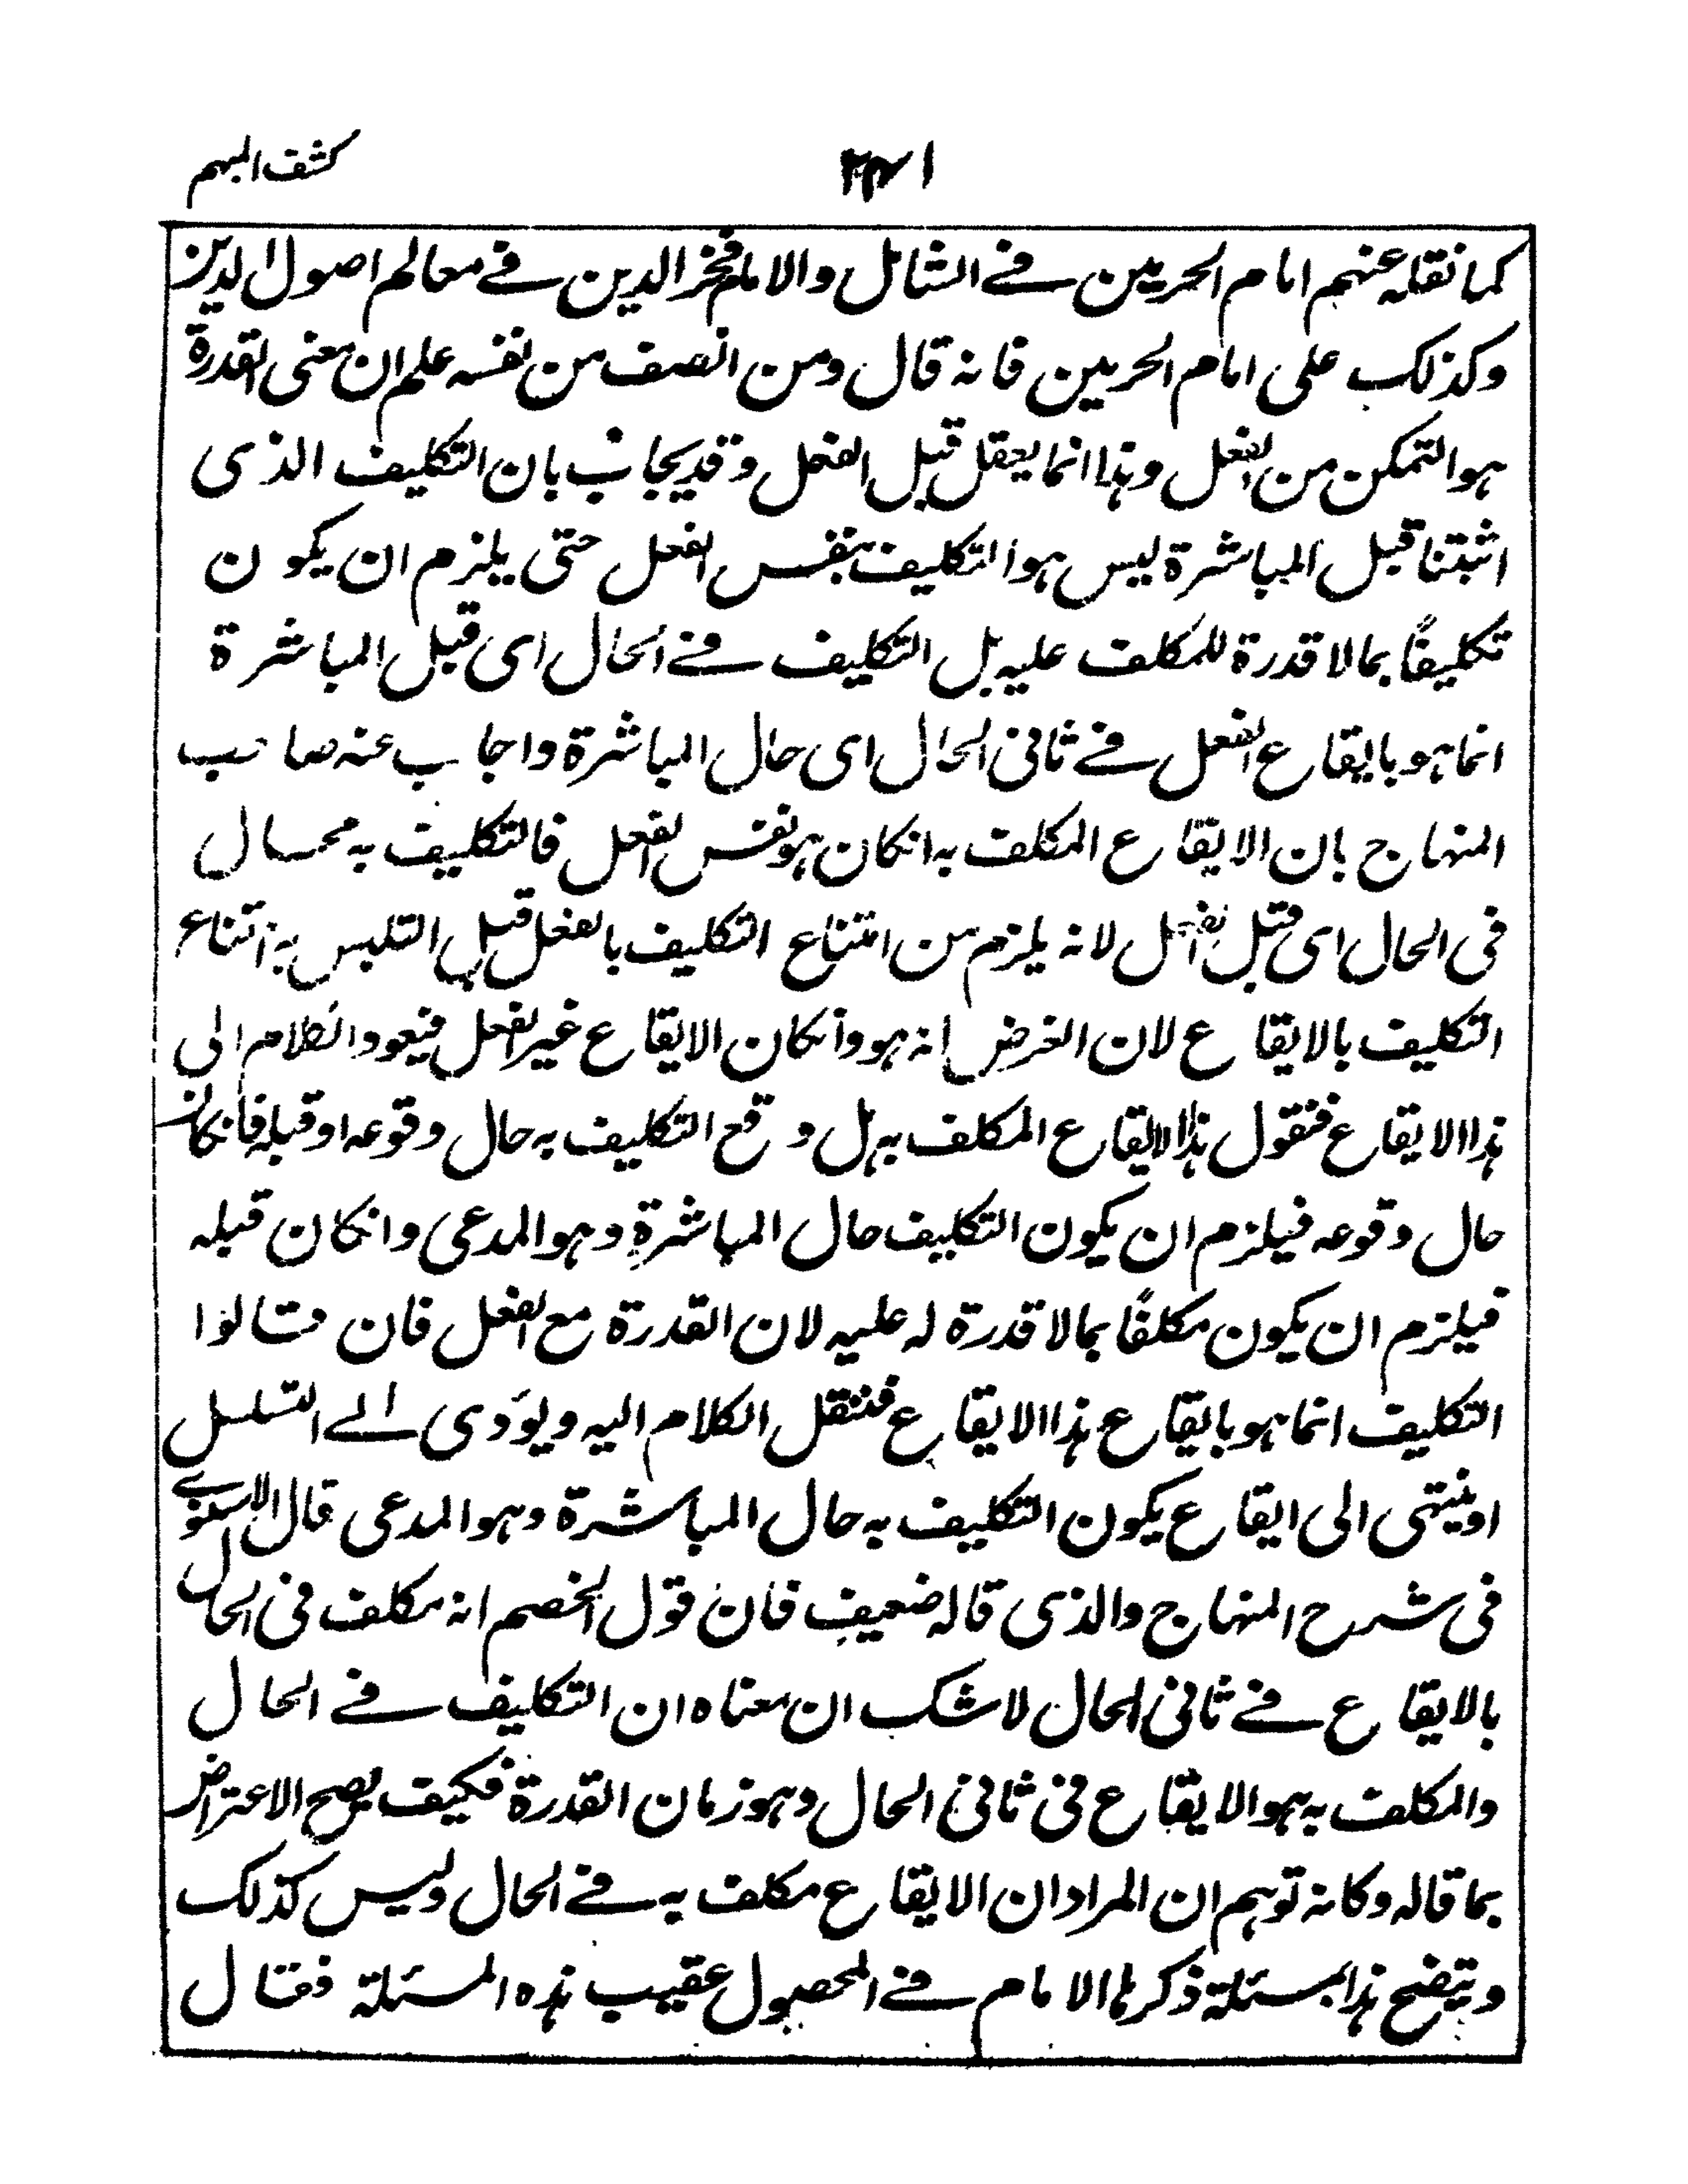 كشف المبهم
كما نقله عنهم امام الحرمين فے الشامل والامام فخر الدين فے معالم اصول الدين
وكذلك على امام الحرمين فانه قال ومن انصف من نفسه علم ان معنى القدرة
هو التمكن من الفعل وهذا انما يعقل قبل الفعل وقد يجاب بان التكليف الذى
اثبتنا قبل المباشرة ليس هو التكليف بنفس الفعل حتى يلزم ان يكون
تكليفًا بما لا قدرة للمكلف عليه بل التكليف فے الحال اى قبل المباشرة
انما هو بايقاع الفعل فے ثانى الحال اى حال المباشرة واجاب عنه صاحب
المنهاج بان الايقاع المكلف به انكان هو نفس الفعل فالتكليف به محال
فى الحال اى قبل الفعل لانه يلزم من امتناع التكليف بالفعل قبل التلبس به امتناع
التكليف بالايقاع لان الغرض انه هو وانكان الايقاع غير الفعل فيعود الكلام الى
هذا الايقاع فنقول هذا الايقاع المكلف به هل وقع التكليف به حال وقوعه او قبله فانكان
حال وقوعه فيلزم ان يكون التكليف حال المباشرة وهو المدعى وانكان قبله
فيلزم ان يكون مكلفًا بما لا قدرة له عليه لان القدرة مع الفعل فان قالوا
التكليف انما هو بايقاع هذا الايقاع فننقل الكلام اليه ويؤدى الے التسلسل
او ينتهى الى ايقاع يكون التكليف به حال المباشرة وهو المدعى قال الاسنوے
فى شرح المنهاج والذى قاله ضعيف فان قول الخصم انه مكلف فى الحال
بالايقاع فے ثانى الحال لا شك ان معناه ان التكليف فے الحال
والمكلف به هو الايقاع فى ثانى الحال وهو زمان القدرة فكيف يصح الاعتراض
بما قاله وكانه توهم ان المراد ان الايقاع مكلف به فے الحال وليس كذلك
ويتضح هذا بمسئلة ذكرها الامام فے المحصول عقيب هذه المسئلة فقال